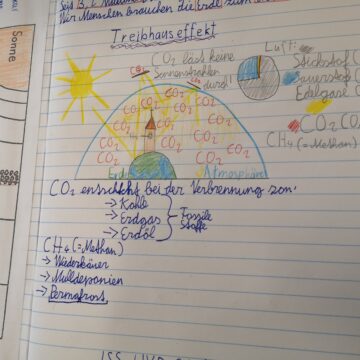 Wir Menschen brauchen die Erde zum
Treibhauseffekt
Sonne
CO₂ läst keine
Sonnenstrahlen
durch!
Luft:
Stickstoff (
Sauerstoff (
Edelgase (
CO₂ CO₂
CH₄ (= Methan)
CO₂ CO₂ CO₂ CO₂ CO₂ CO₂ CO₂ CO₂ CO₂ CO₂ CO₂ CO₂
Erde
Atmosphäre
CO₂ entsteht bei der Verbrennung von:
→ Kohle
→ Erdgas
→ Erdöl
Fossile
Stoffe
CH₄ (= Methan)
→ Wiederkäuer
→ Mülldeponien
→ Permafrost